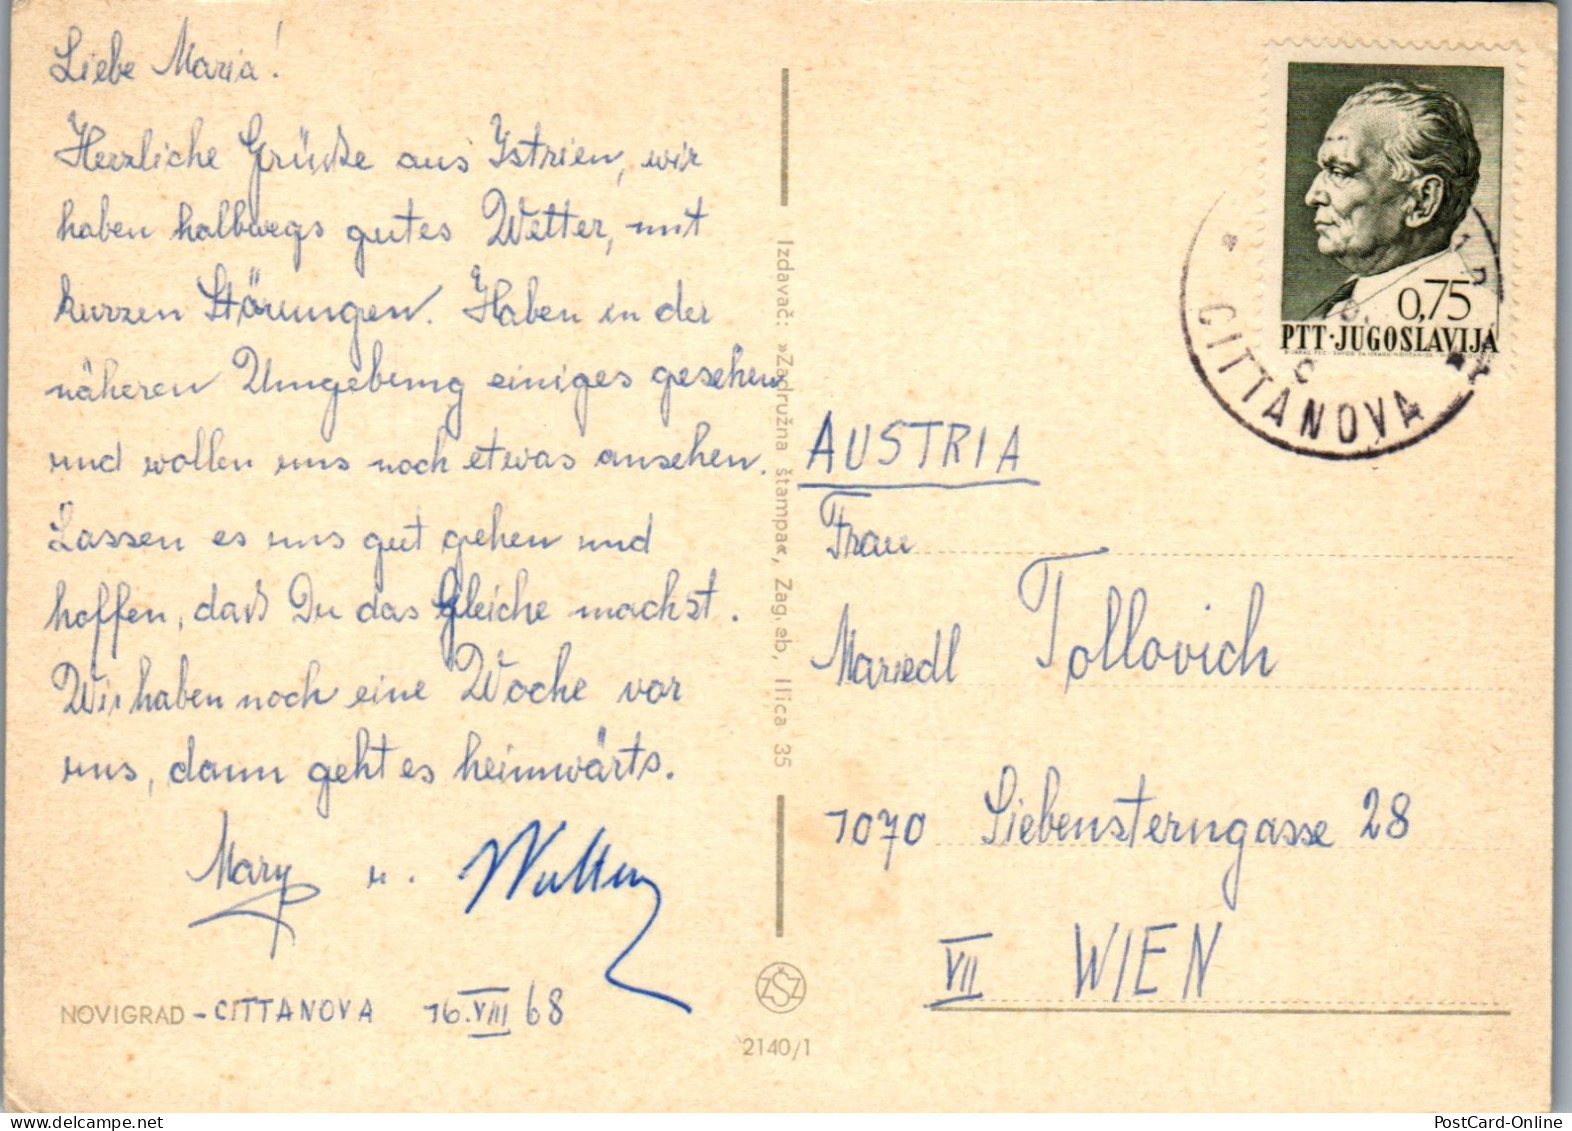 Liebe Maria!
Herzliche Grüße aus Istrien, wir
haben halbwegs gutes Wetter, mit
kurzen Störungen. Haben in der
näheren Umgebung einiges gesehen
und wollen uns noch etwas ansehen.
Lassen es uns gut gehen und
hoffen, daß Du das Gleiche machst.
Wir haben noch eine Woche vor
uns, dann geht es heimwärts.
Mary u.
NOVIGRAD - CITTANOVA 16.VIII 68
Izdavač: »Zadružna štampa«, Zagreb, Ilica 35
ZŠZ
2140/1
0,75
PTT·JUGOSLAVIJA
CITTANOVA
AUSTRIA
Frau
Mariedl Tollovich
1070 Siebensterngasse 28
VII WIEN
PostCard-Online